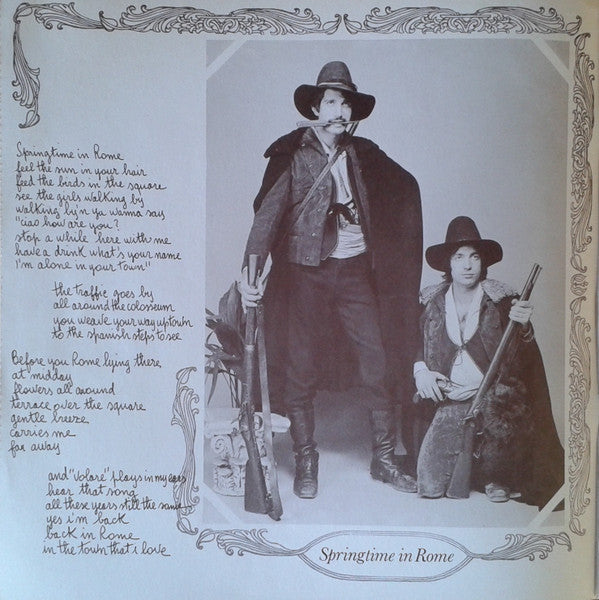 Springtime in Rome
feel the sun in your hair
feed the birds in the square
see the girls walking by
walking by'n ya wanna say
"ciao how are you?
stop a while here with me
have a drink what's your name
i'm alone in your town"
the traffic goes by
all around the colosseum
you weave your way uptown
to the spanish steps to see
Before you Rome lying there
at midday
flowers all around
terrace over the square
gentle breeze
carries me
far away
and "Volare" plays in my ears
hear that song
all these years still the same
yes i'm back
back in Rome
in the town that i love
Springtime in Rome